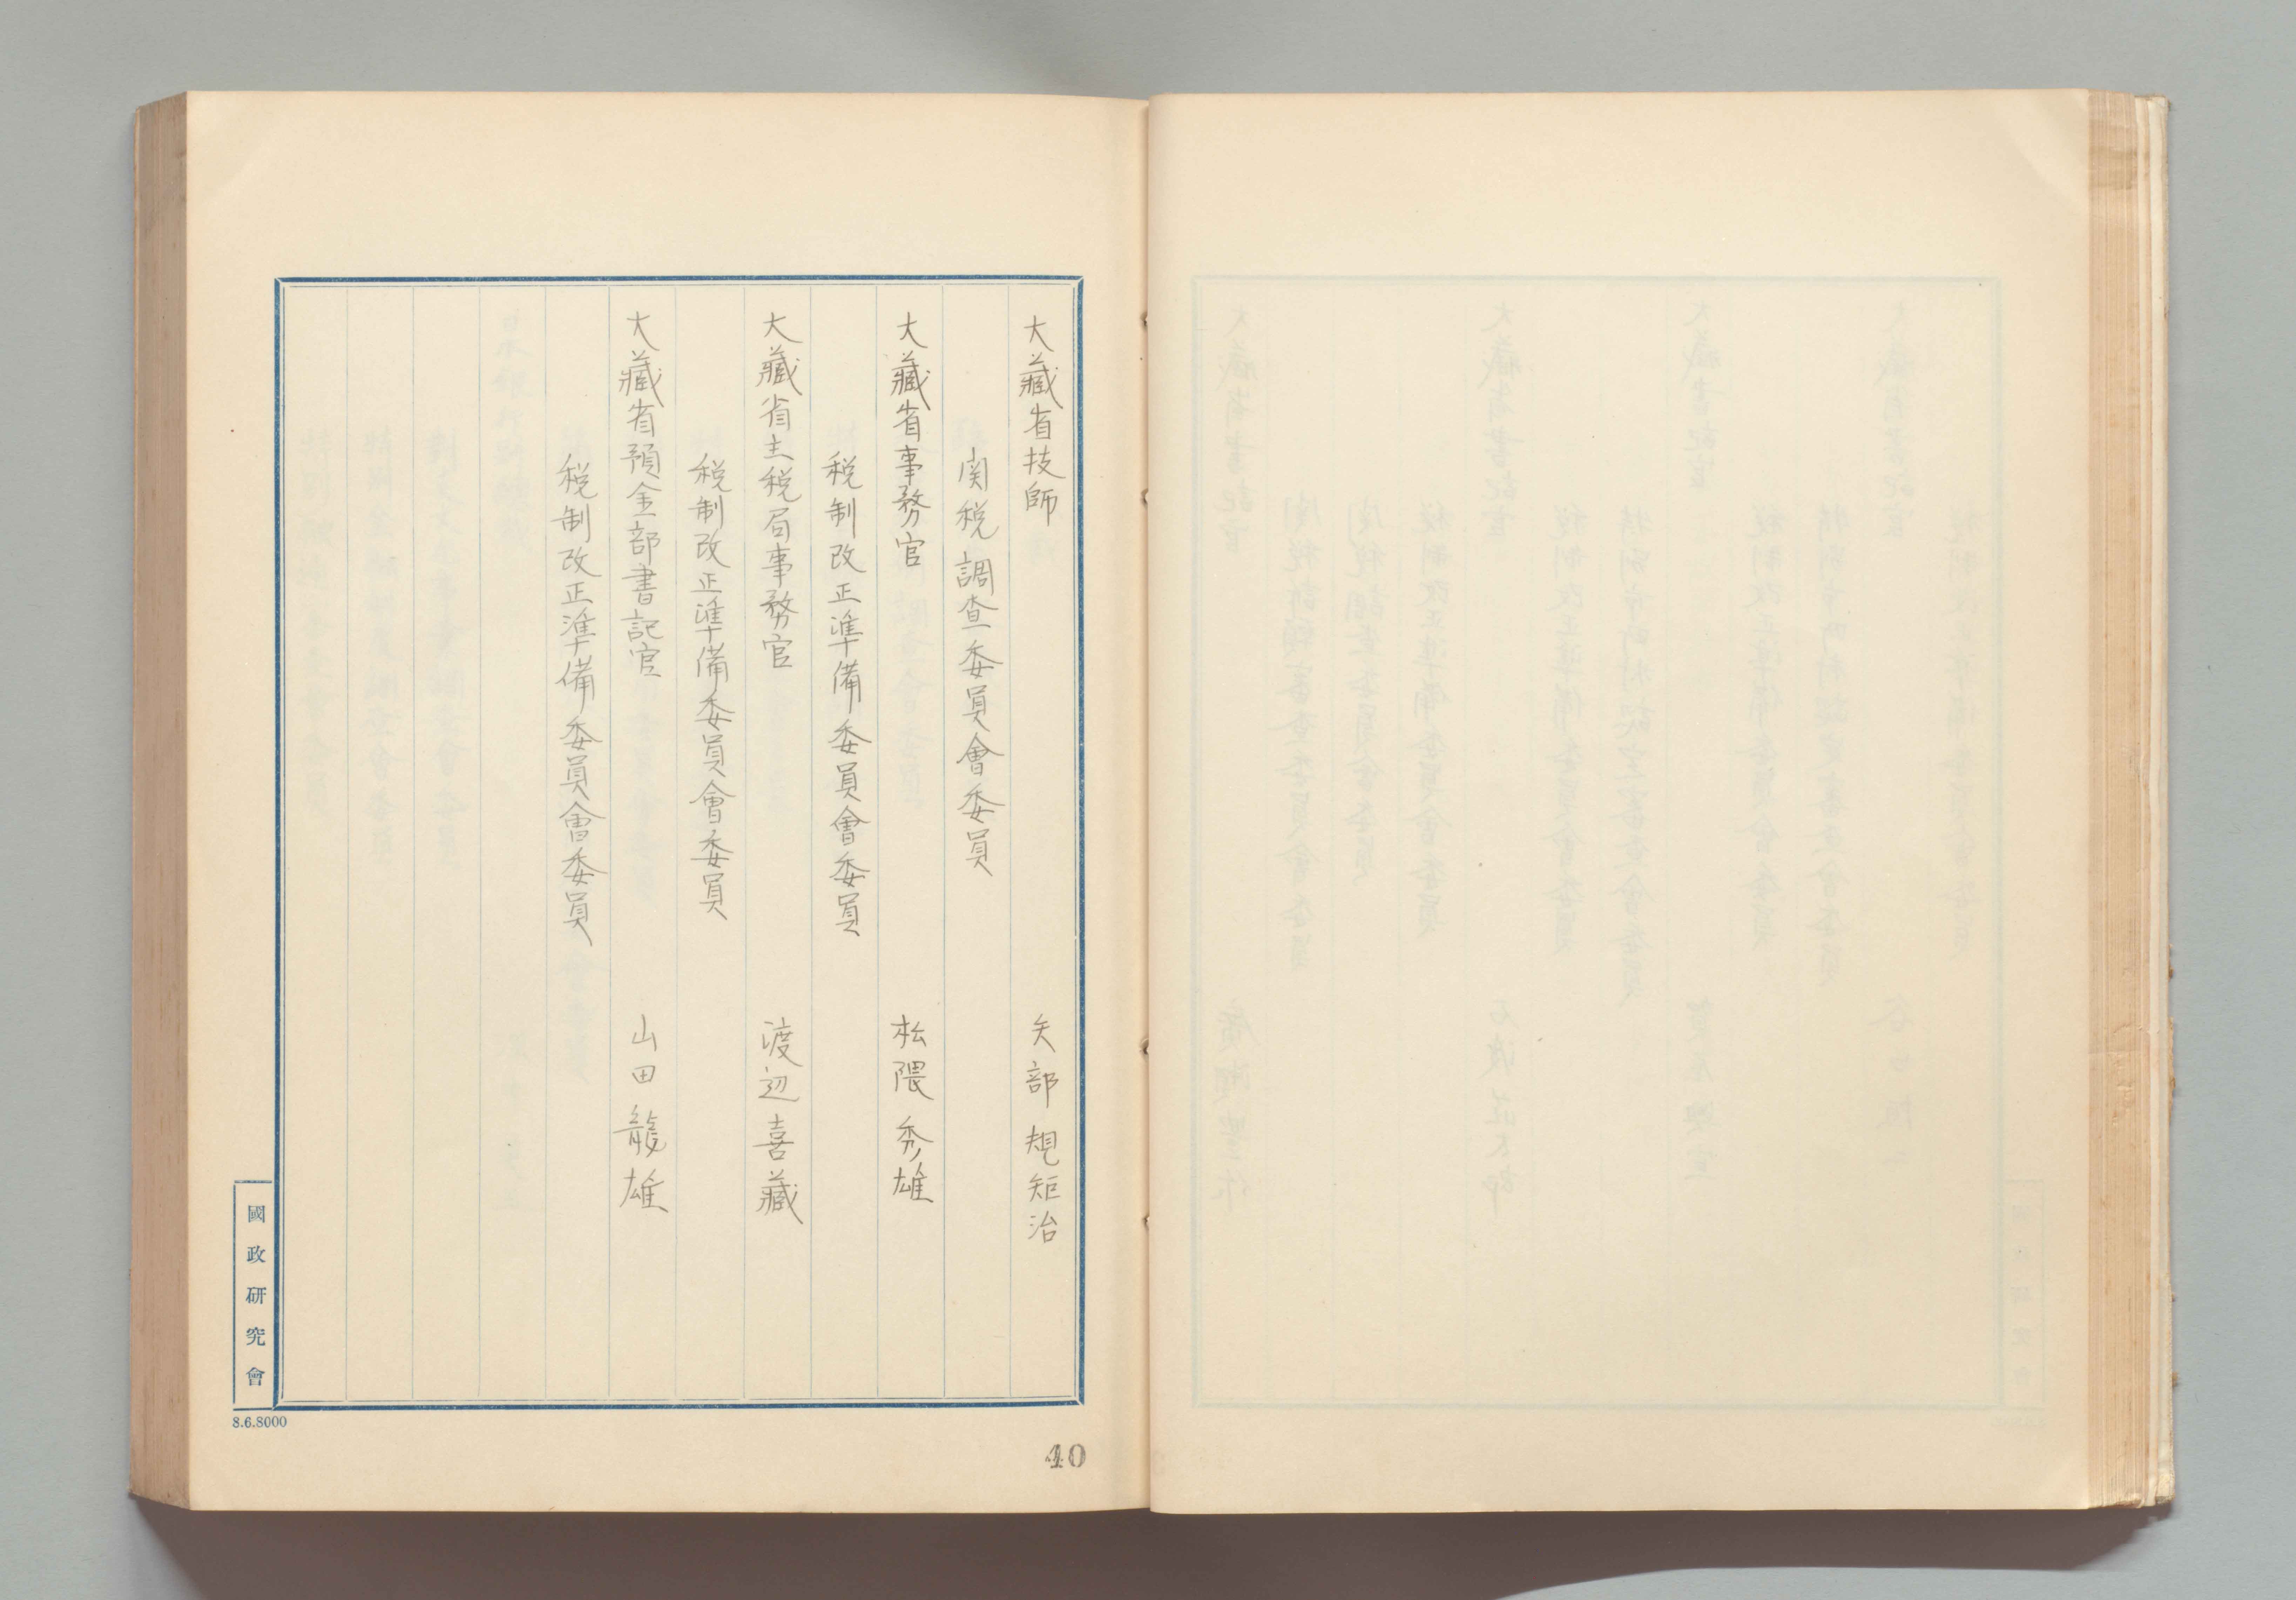 大藏省技師　矢部規矩治
関税調査委員會委員
大藏省事務官　松隈秀雄
税制改正準備委員會委員
大藏省主税局事務官　渡辺喜藏
税制改正準備委員會委員
大藏省預金部書記官　山田龍雄
税制改正準備委員會委員
國政研究會
8.6.8000
40